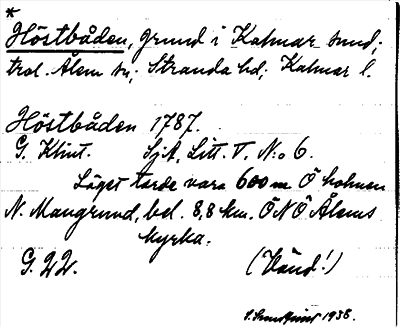 *
Höstbåden, grund i Kalmar sund;
trol. Ålem sn; Stranda hd; Kalmar l.
Höstbåden 1787.
G. Klint. SjA, Litt. V. N:o 6.
Läget torde vara 600 m Ö holmen
N. Mangrund, bel. 8,8 km. ÖNÖ Ålems
kyrka.
G. 22. (Vänd!)
1938.